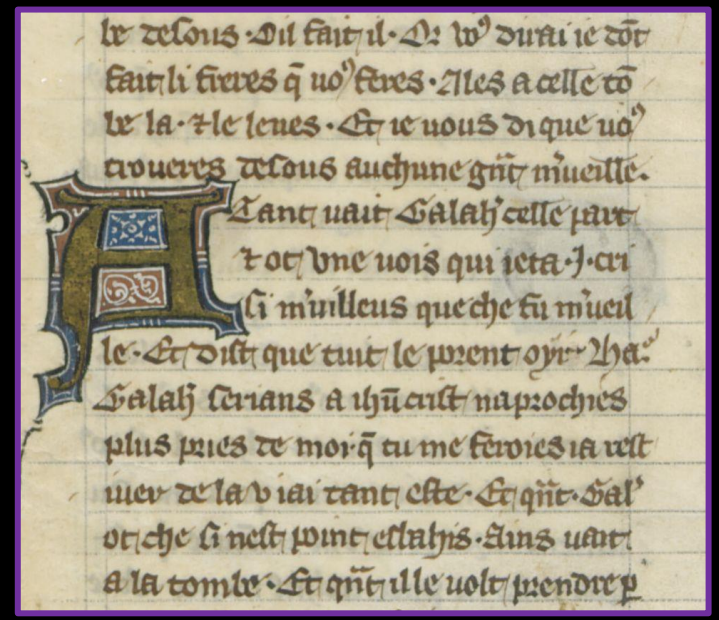 be desous · Oil fait il · Or voꝰ dirai ie dōt
fait li freres q̄ uoꝰ feres · Ales a celle tō
be la · ⁊ le leues · Et ie uous di que uoꝰ
troueres desous auchune gn̄t m̾ueille.
A Tant uait Galaħ celle part
⁊ ot vne uois qui ieta · J · cri
si m̾uilleus que che fu m̾ueil
le · Et dist que tuit le porent oyr · Haꝰ
Galaħ serians a ihū crist naprochies
plus pries de moi · q̄ tu me feroies ia rest
iuer de la v iai tant este · Et qn̄t · Gal̾
ot che si nest point eslahis · Ains uait
a la tombe · Et qn̄t il le uolt prendre ꝑ